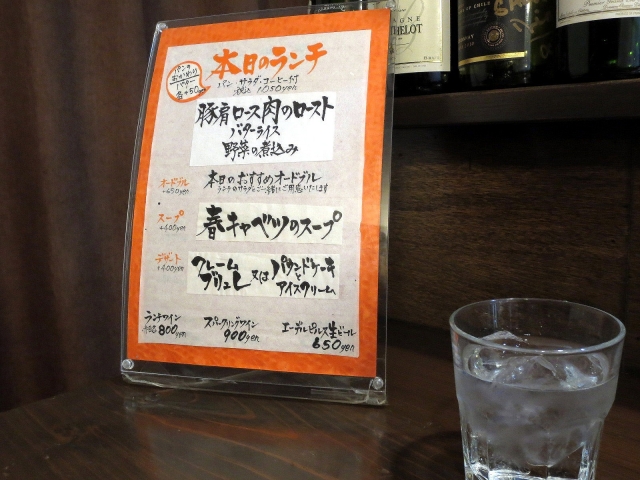 本日のランチ
パン・サラダ・コーヒー付
税込 1050yen
パンの
おかわり
バター
各+50yen
豚肩ロース肉のロースト
バターライス
野菜の煮込み
オードブル
+650yen
本日のおすすめオードブル
ランチのサラダとご一緒にご用意いたします
スープ
+400yen
春キャベツのスープ
デザート
+400yen
クレーム
ブリュレ
又は
パウンドケーキ
と
アイスクリーム
ランチワイン
800yen
スパークリングワイン
900yen
エーデルピルス生ビール
650yen